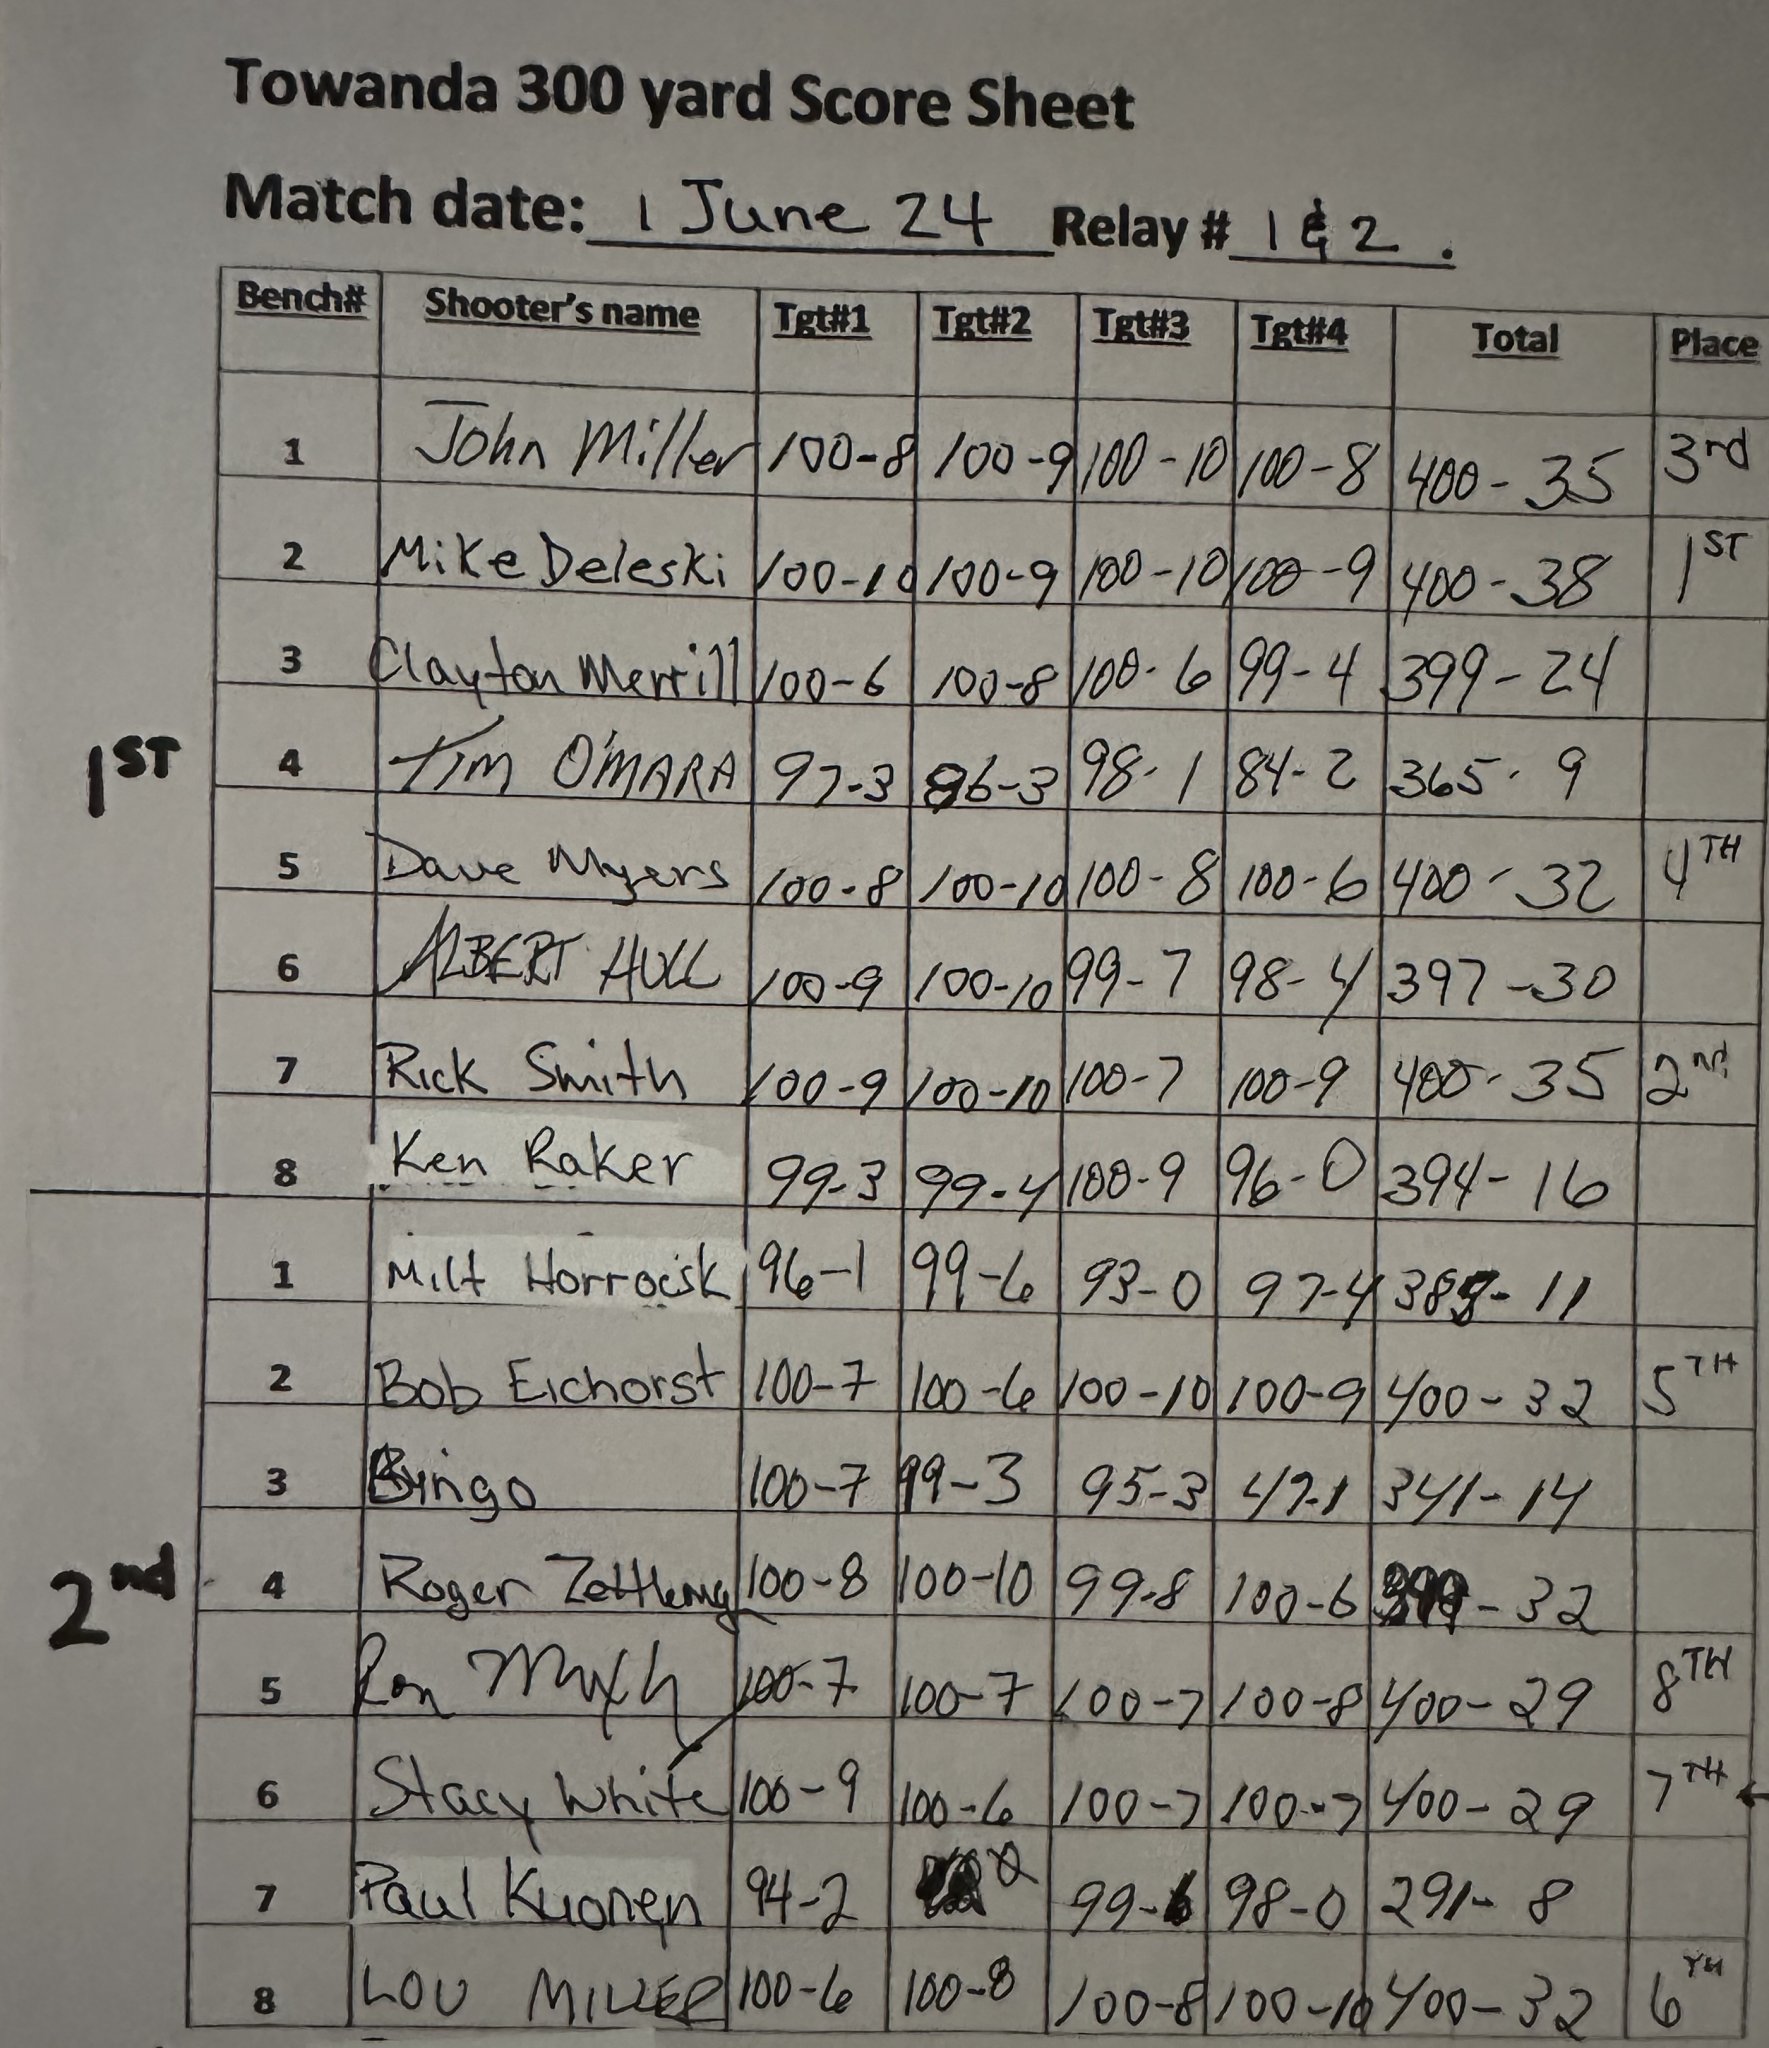 Towanda 300 yard Score Sheet
Match date: 1 June 24 Relay # 1 & 2 .
Bench# Shooter's name Tgt#1 Tgt#2 Tgt#3 Tgt#4 Total Place
1 John Miller 100-8 100-9 100-10 100-8 400-35 3rd
2 Mike Deleski 100-10 100-9 100-10 100-9 400-38 1ST
3 Clayton Merrill 100-6 100-8 100-6 99-4 399-24
1ST
4 TIM O'MARA 97-3 86-3 98-1 84-2 365-9
5 Dave Myers 100-8 100-10 100-8 100-6 400-32 4TH
6 ALBERT HULL 100-9 100-10 99-7 98-4 397-30
7 Rick Smith 100-9 100-10 100-7 100-9 400-35 2nd
8 Ken Raker 99-3 99-4 100-9 96-0 394-16
1 Milt Horrocsk 96-1 99-6 93-0 97-4 385-11
2 Bob Eichorst 100-7 100-6 100-10 100-9 400-32 5TH
3 Bingo 100-7 99-3 95-3 47-1 341-14
2nd
4 Roger 100-8 100-10 99-8 100-6 399-32
5 Ron 100-7 100-7 100-7 100-8 400-29 8TH
6 Stacy White 100-9 100-6 100-7 100-7 400-29 7TH
7 Paul Kuonen 94-2 99-6 98-0 291-8
8 LOU MILLER 100-6 100-8 100-8 100-10 400-32 6TH